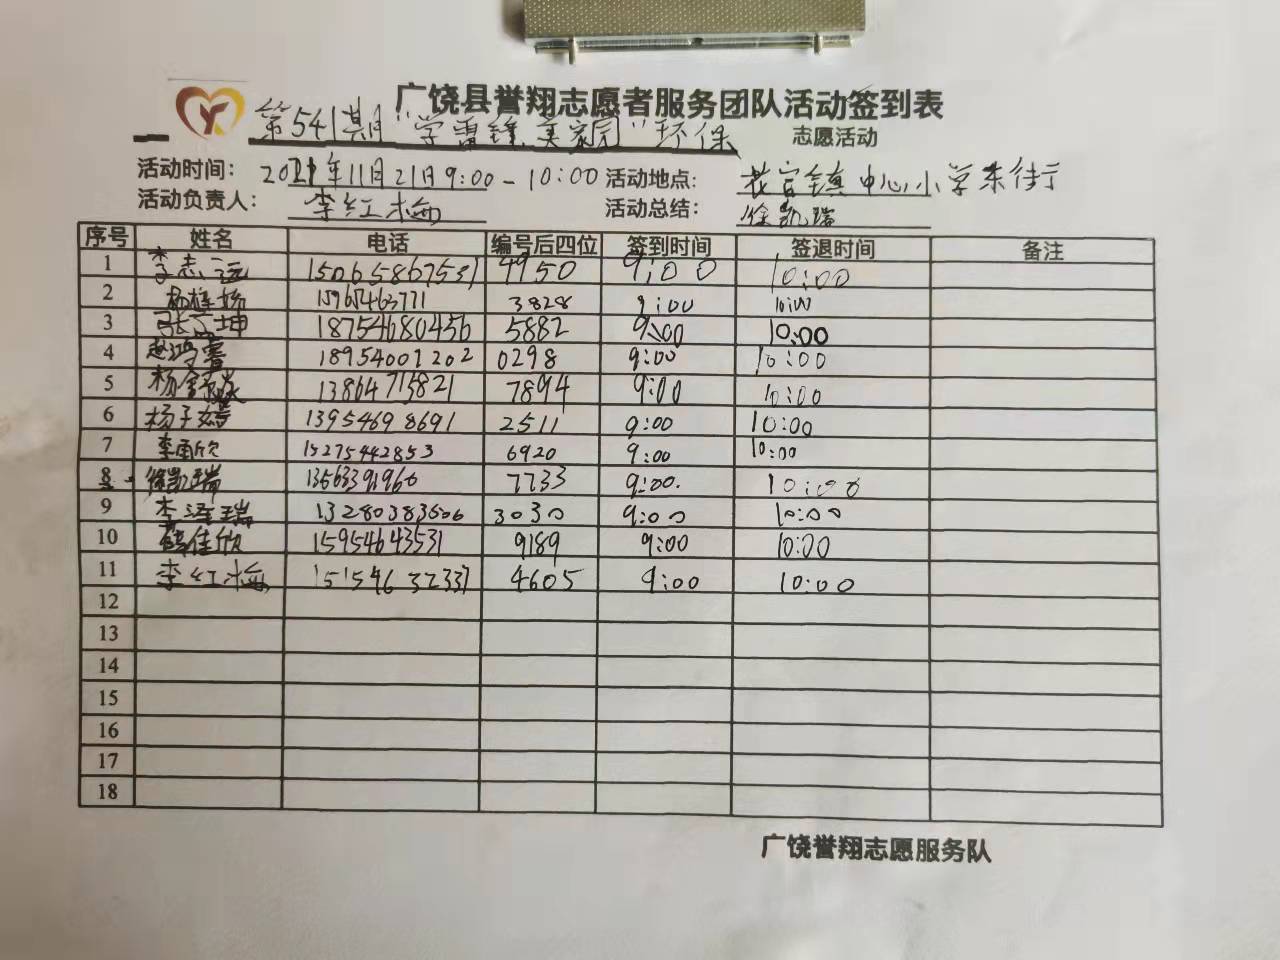 广饶县誉翔志愿者服务团队活动签到表
第541期"学雷锋、美家园"环保 志愿活动
活动时间: 2021年11月21日9:00-10:00 活动地点: 花官镇中心小学东街
活动负责人: 李红梅 活动总结: 徐凯瑞
序号 姓名 电话 编号后四位 签到时间 签退时间 备注
1 李志远 15065867531 4950 9:00 10:00
2 3828 9:00 10:00
3 张坤 18754680456 5882 9:00 10:00
4 赵鸿 18954001202 0298 9:00 10:00
5 杨 13864715821 7894 9:00 10:00
6 杨子嫣 13954698691 2511 9:00 10:00
7 李雨欣 15275442853 6920 9:00 10:00
8 徐凯瑞 13563391960 7733 9:00 10:00
9 李泽瑞 13280383506 3030 9:00 10:00
10 佳欣 15954643531 9189 9:00 10:00
11 李红梅 15154632337 4605 9:00 10:00
12
13
14
15
16
17
18
广饶誉翔志愿服务队